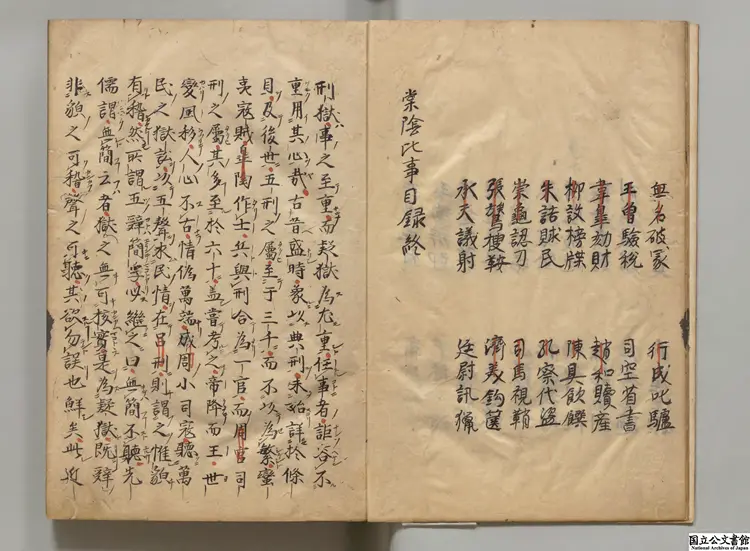 無名破家　行成叱驢
王曽驗税　司空省書
韋皐劾財　趙和贖産
柳設榜牒　陳具飲饌
朱詰賕民　孔察代盗
崇龜認刀　司馬視鞘
張鷟捜鞍　濟美鈎篋
承天議射　廷尉訊獵
棠陰比事目録終
刑獄事之至重而疑獄為尤重任事者詎容不
重用其心哉古昔盛時象以典刑未始詳於條
目及後世五刑之屬至于三千而不以為繁蠻
夷寇賊皐陶作士兵與刑合為一官而周官司
刑之屬其多至於六十盖嘗考之帝降而王世
變風移人心不古情偽萬端成周小司寇聽萬
民之獄訟以五聲求民情在呂刑則謂之惟貌
有稽然所謂五辭簡孚必継之曰無簡不聽先
儒謂無簡云者獄之無可核實是為疑獄既辭
非貌之可稽聲之可聽其欲勿誤也鮮矣此近
国立公文書館
National Archives of Japan